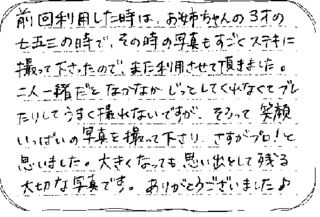 前回利用した時は、お姉ちゃんの3才の
七五三の時で、その時の写真もすごくステキに
撮って下さったので、また利用させて頂きました。
二人一緒だとなかなかじっとしてくれなくてブレ
たりしてうまく撮れないですが、そろって笑顔
いっぱいの写真を撮って下さり、さすがプロ!と
思いました。大きくなっても思い出をして残る
大切な写真です。ありがとうございました♪